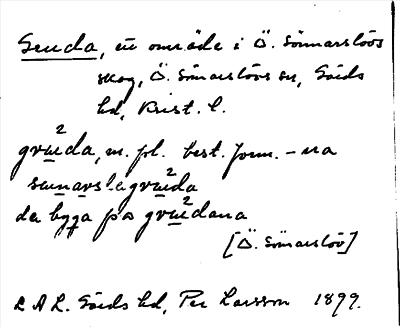 Gruda, ett område i Ö. Sönnarslövs
skog, Ö. Sönnarslövs sn, Gärds
hd, Krist. l.
grūda, m. pl. best. form. -na
sunarslagrūda
de bygga på grūdana
[Ö. Sönnarslöv]
L A L. Gärds hd, Per Larsson 1899.